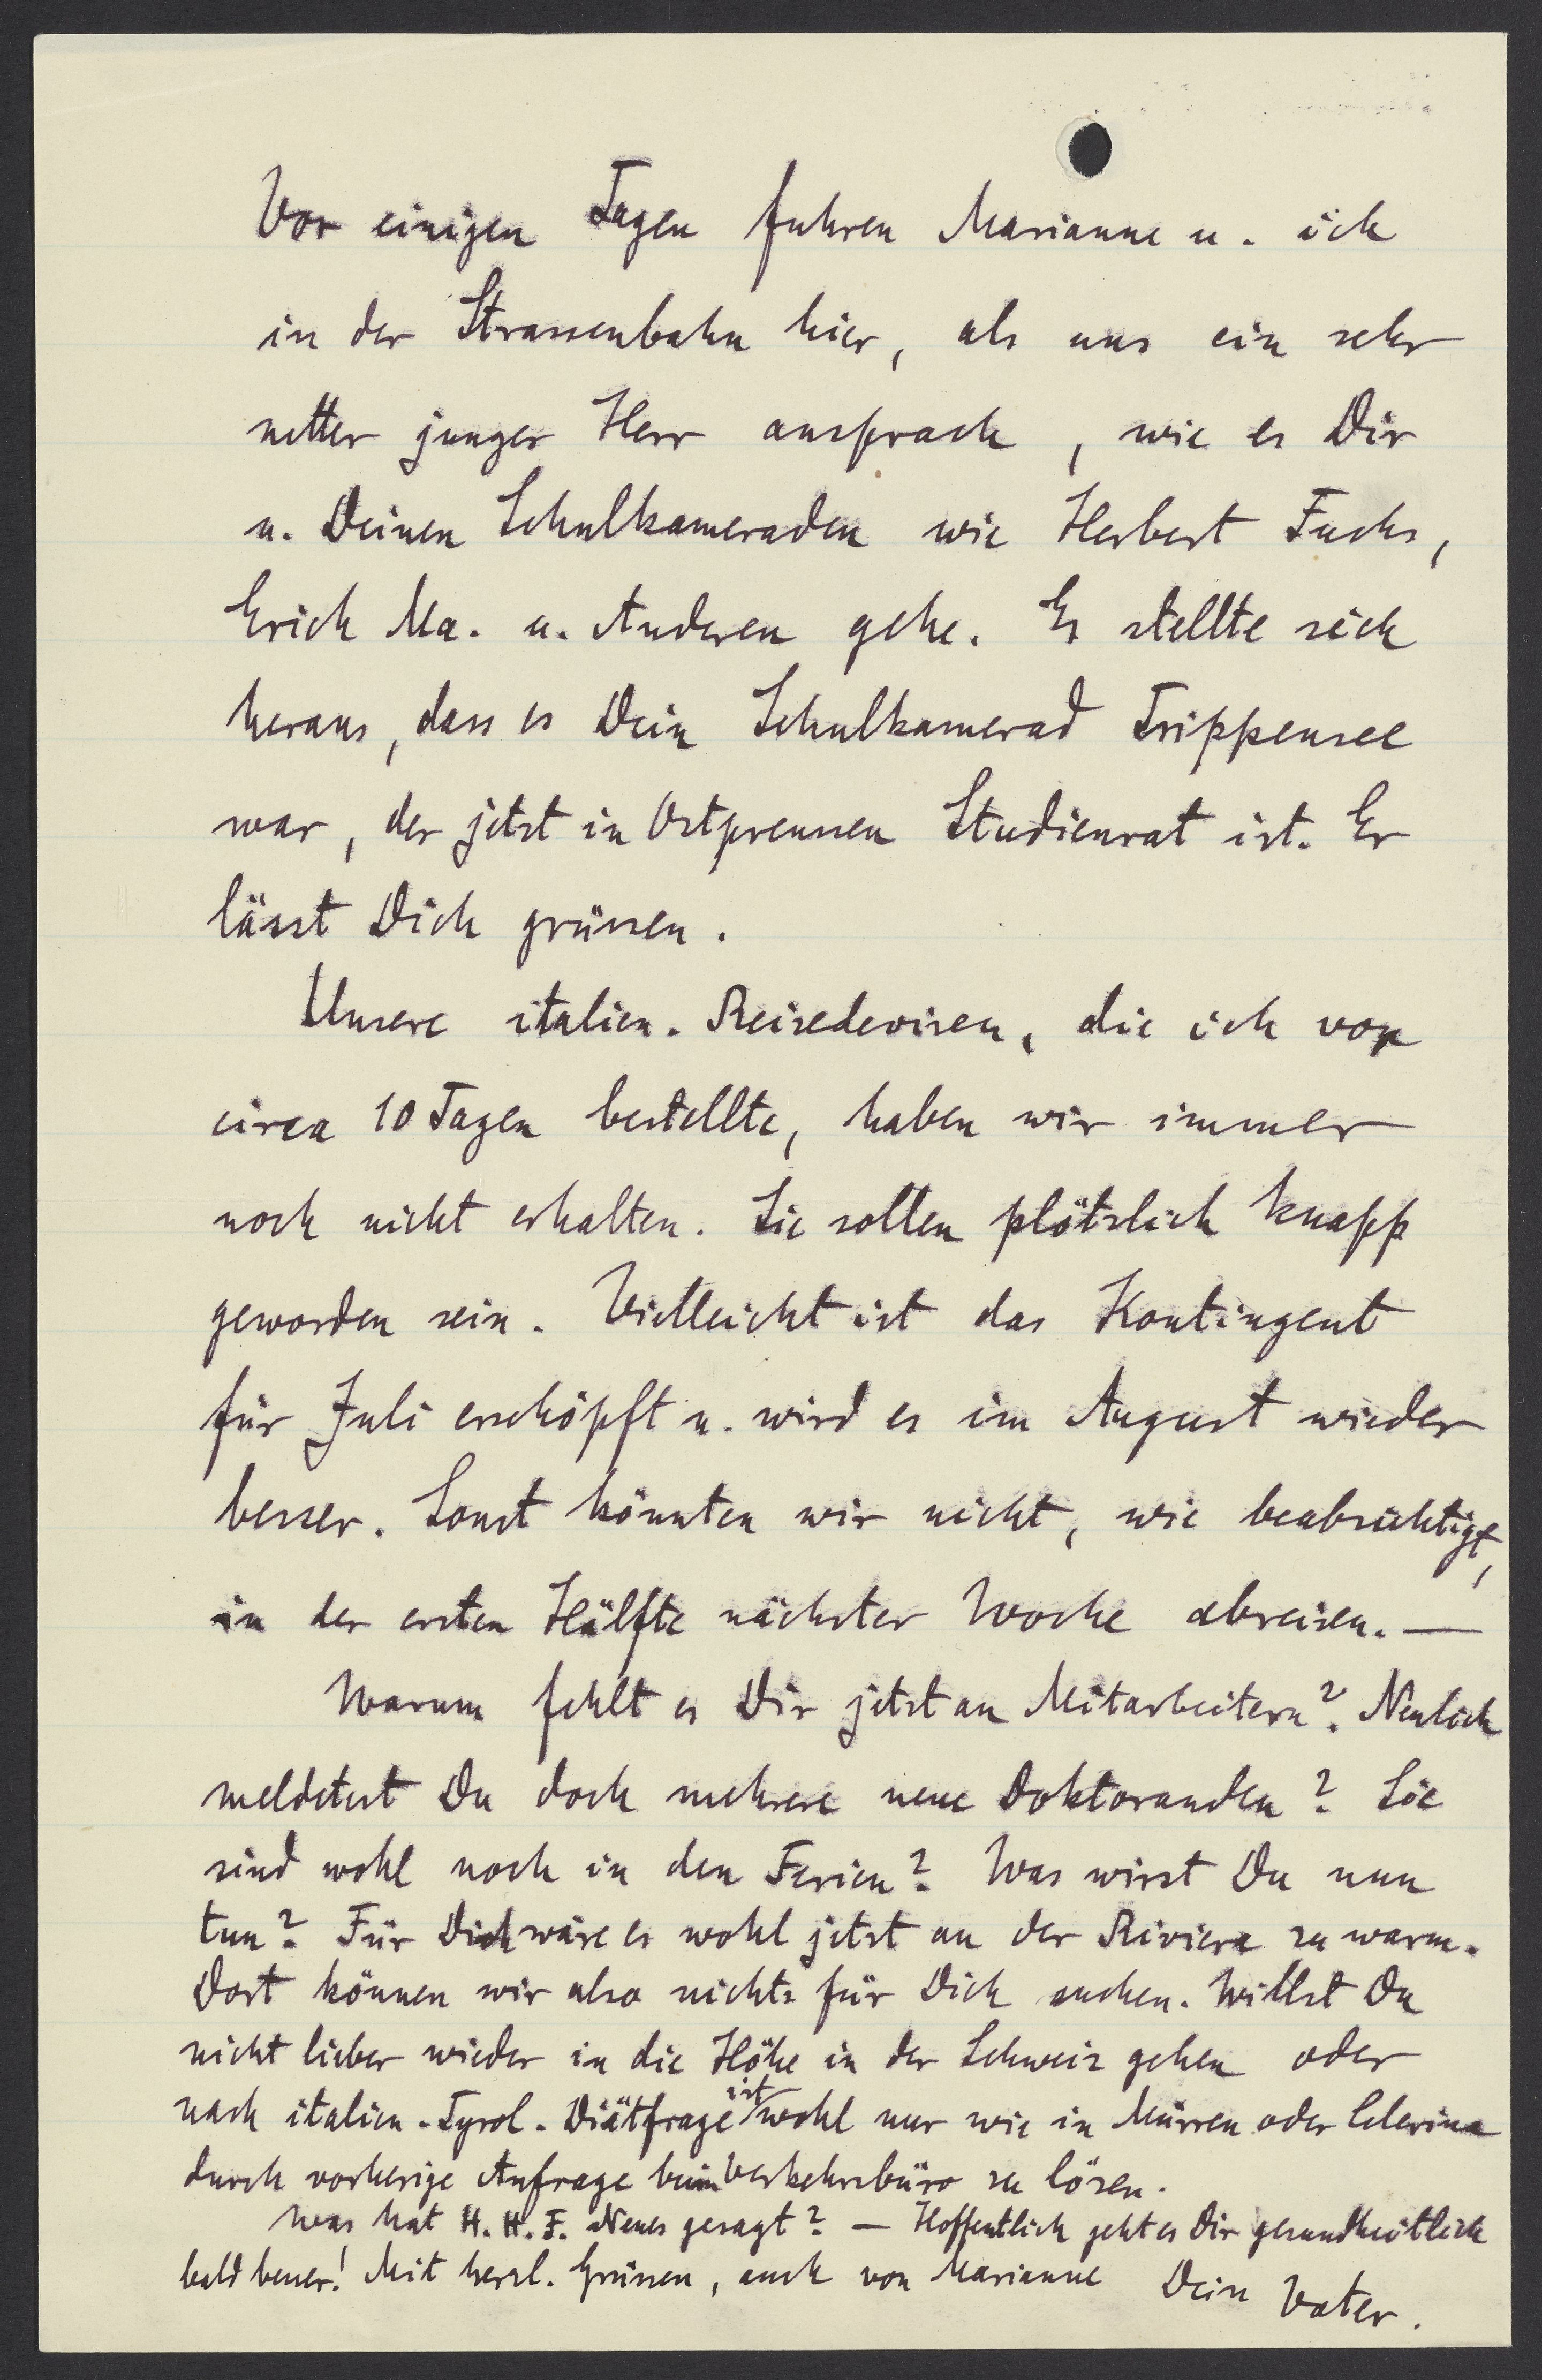 Vor einigen Tagen fuhren Marianne u. ich
in der Strassenbahn hier, als uns ein sehr
netter junger Herr ansprach, wie es Dir
u. Deinen Schulkameraden wie Herbert Fuchs,
Erich Ma. u. Anderen gehe. Es stellte sich
heraus, dass es Dein Schulkamerad Trippensee
war, der jetzt in Ostpreussen Studienrat ist. Er
lässt Dich grüssen.
Unsere italien. Reisedevisen, die ich vor
circa 10 Tagen bestellte, haben wir immer
noch nicht erhalten. Sie sollen plötzlich knapp
geworden sein. Vielleicht ist das Kontingent
für Juli erschöpft u. wird es im August wieder
besser. Sonst könnten wir nicht, wie beabsichtigt,
in der ersten Hälfte nächster Woche abreisen. —
Warum fehlt es Dir jetzt an Mitarbeitern? Neulich
meldetest Du doch mehrere neue Doktoranden? Sie
sind wohl noch in den Ferien? Was wirst Du nun
tun? Für Dich wäre es wohl jetzt an der Riviera zu warm.
Dort können wir also nichts für Dich suchen. Willst Du
nicht lieber wieder in die Höhe in der Schweiz gehen oder
nach italien. Tyrol. Diätfrage ist wohl nur wie in Mürren oder Celerina
durch vorherige Anfrage beim Verkehrsbüro zu lösen.
Was hat H. H. F. Neues gesagt? — Hoffentlich geht es Dir gesundheitlich
bald besser! Mit herzl. Grüssen, auch von Marianne Dein Vater.